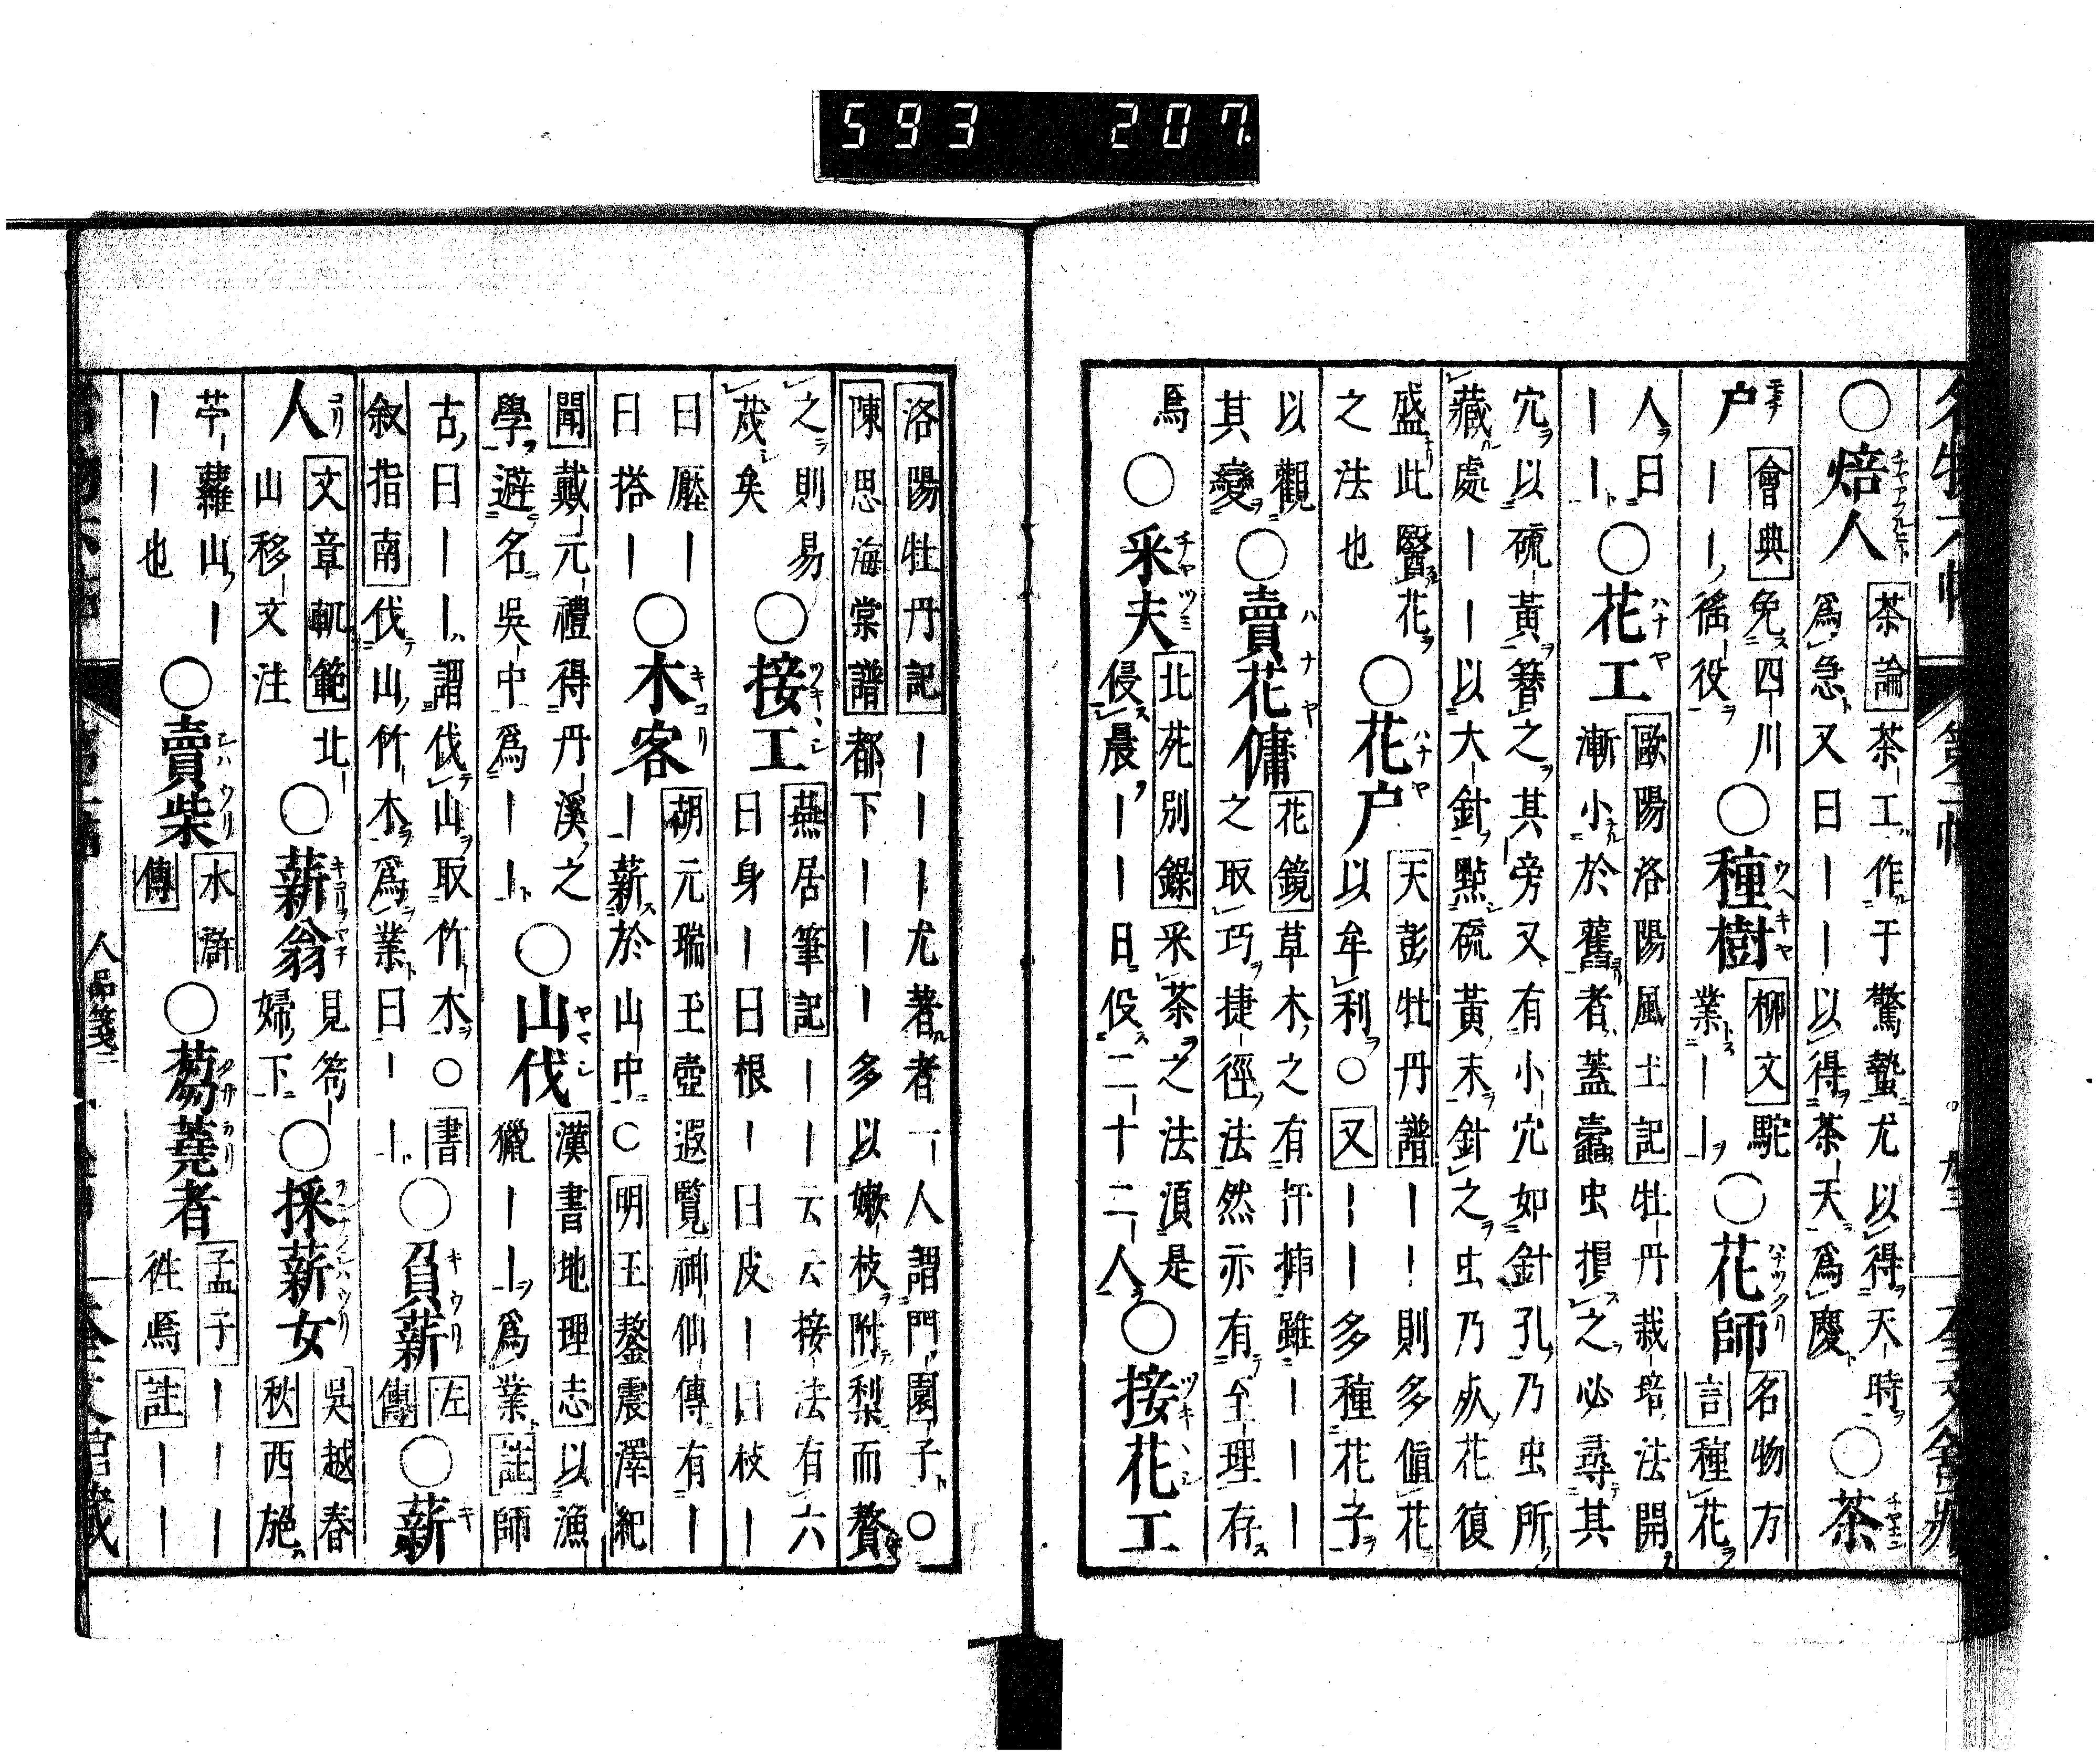 593 207
○焙人 茶論 茶工作于驚蟄尤以得天時 為急又曰――以得茶天為慶 ○茶
戸 會典 免四川 ―――徭役 ○種樹 柳文 駝 業―― ○花師 名物方言 種花
人曰―― ○花工 歐陽洛陽風土記 牡丹栽培法開 漸小於舊者蓋蠹虫損之必尋其
穴以硫黃簪之其旁又有小穴如針孔乃虫所
藏處――以大針點硫黃末針之虫乃死花復
盛此醫花之法也 ○花戸 天彭牡丹譜 ―――則多植花 以牟利○又―――多種花子
以觀其變 ○賣花傭 花鏡 草木之有扦揷雖――― 之取巧捷徑法然亦有至理存
焉 ○采夫 北苑別錄 采茶之法須是 侵晨――日役二十二人 ○接花工
洛陽牡丹記 ―――尤著者一人謂門園子○
陳思海棠譜 都下―――多以嫩枝附梨而贅
之則易茂矣 ○接工 燕居筆記 ――云云接法有六 曰身―曰根―曰皮―曰枝―
曰壓―曰搭― ○木客 胡元瑞玉壺遐覧 神仙傳有― ―薪於山中○明王鏊震澤紀
聞 戴元禮得丹溪之學避名吳中為―― ○山伐 漢書地理志 以漁獵――為業 註 師
古曰――謂伐山取竹木○書
敘指南 伐山竹木為業曰―― ○負薪 左傳 ○薪
人 文章軌範 北山移文注 ○薪翁 見笱婦下 ○採薪女 吳越春秋 西施
苧蘿山―――也 ○賣柴 水滸傳 ○蒭蕘者 孟子 ―――徃焉 註 ――
人品箋二